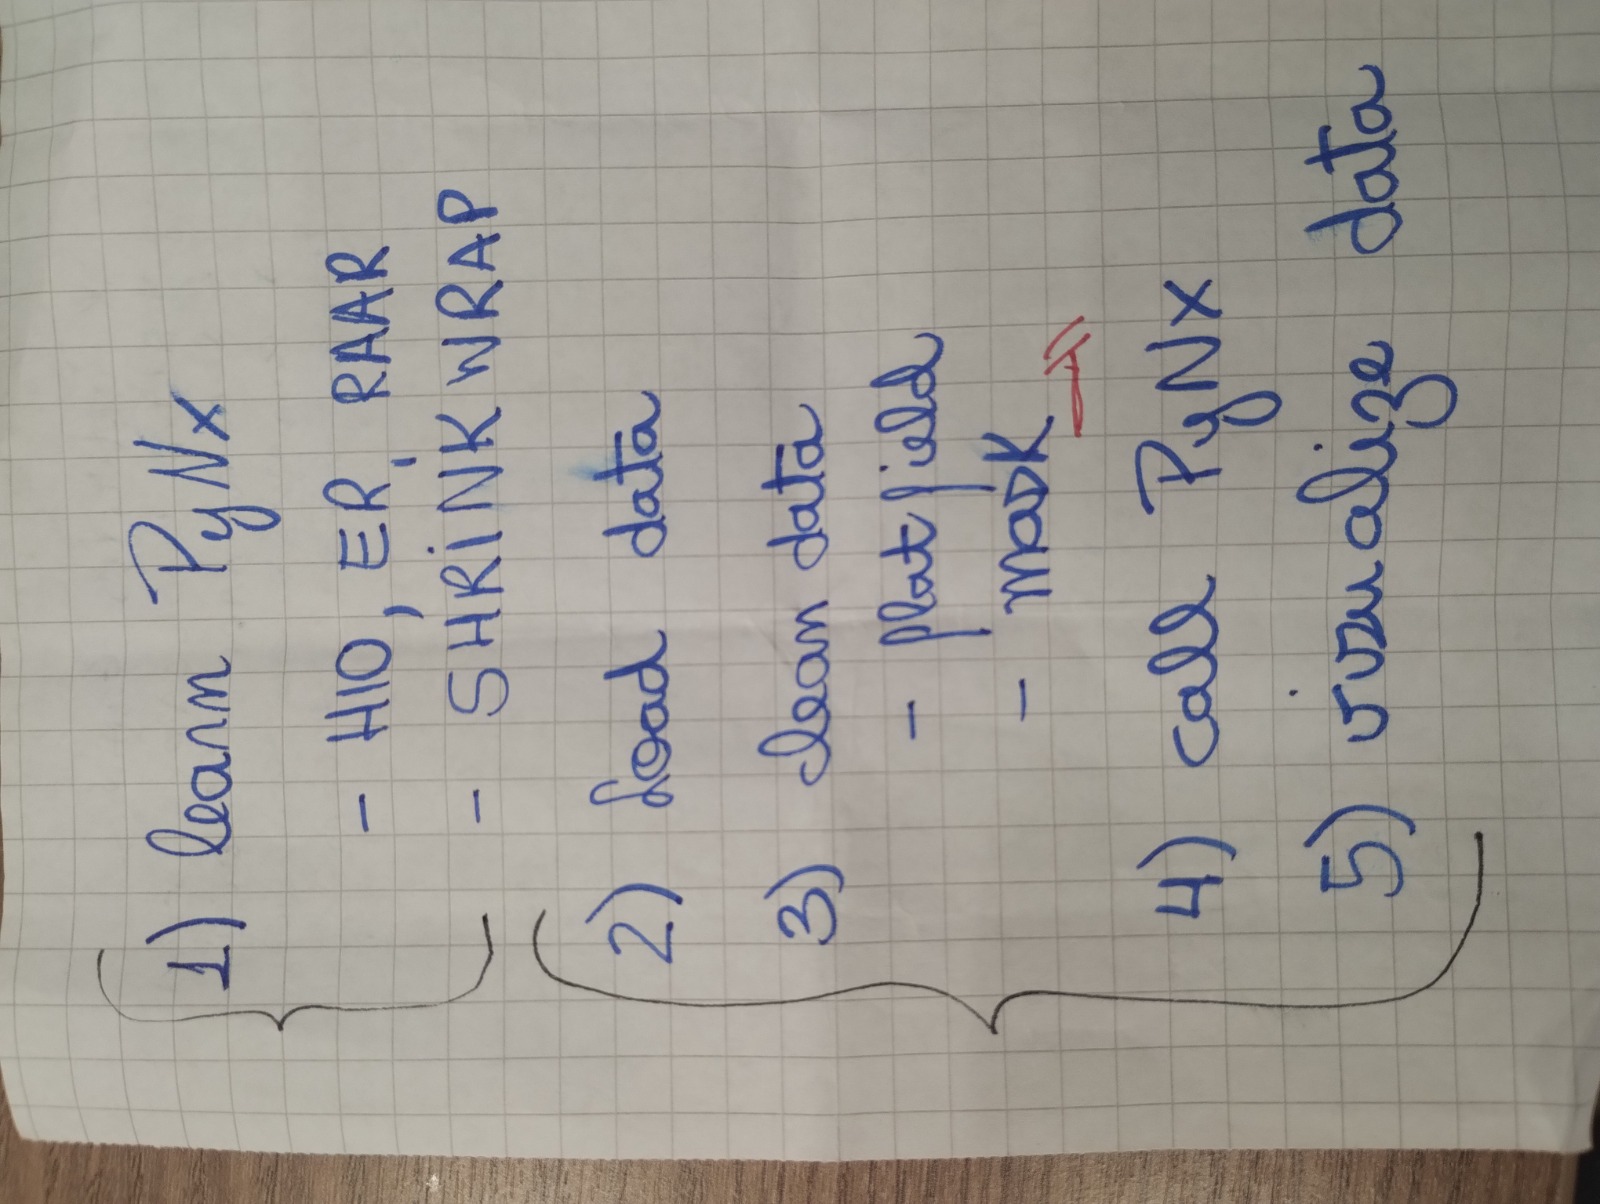 1) learn PyNx
- HIO, ER, RAAR
- SHRINK WRAP
2) load data
3) clean data
- flat field
- mask
4) call PyNX
5) vizualize data